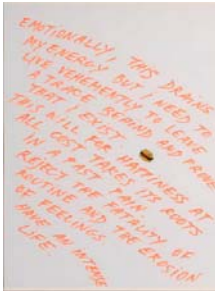 EMOTIONALLY, THIS DRAINS
MY ENERGY BUT I NEED TO
LIVE VEHEMENTLY TO LEAVE
A TRACE BEHIND AND PROVE
THAT I EXIST
THIS WILL FOR HAPPINESS AT
ALL COST TAKES ITS ROOTS
IN A PAST PAIN
REJECT THE FATALITY OF
ROUTINE AND THE EROSION
OF FEELINGS.
HAVE AN INTENSE
LIFE.